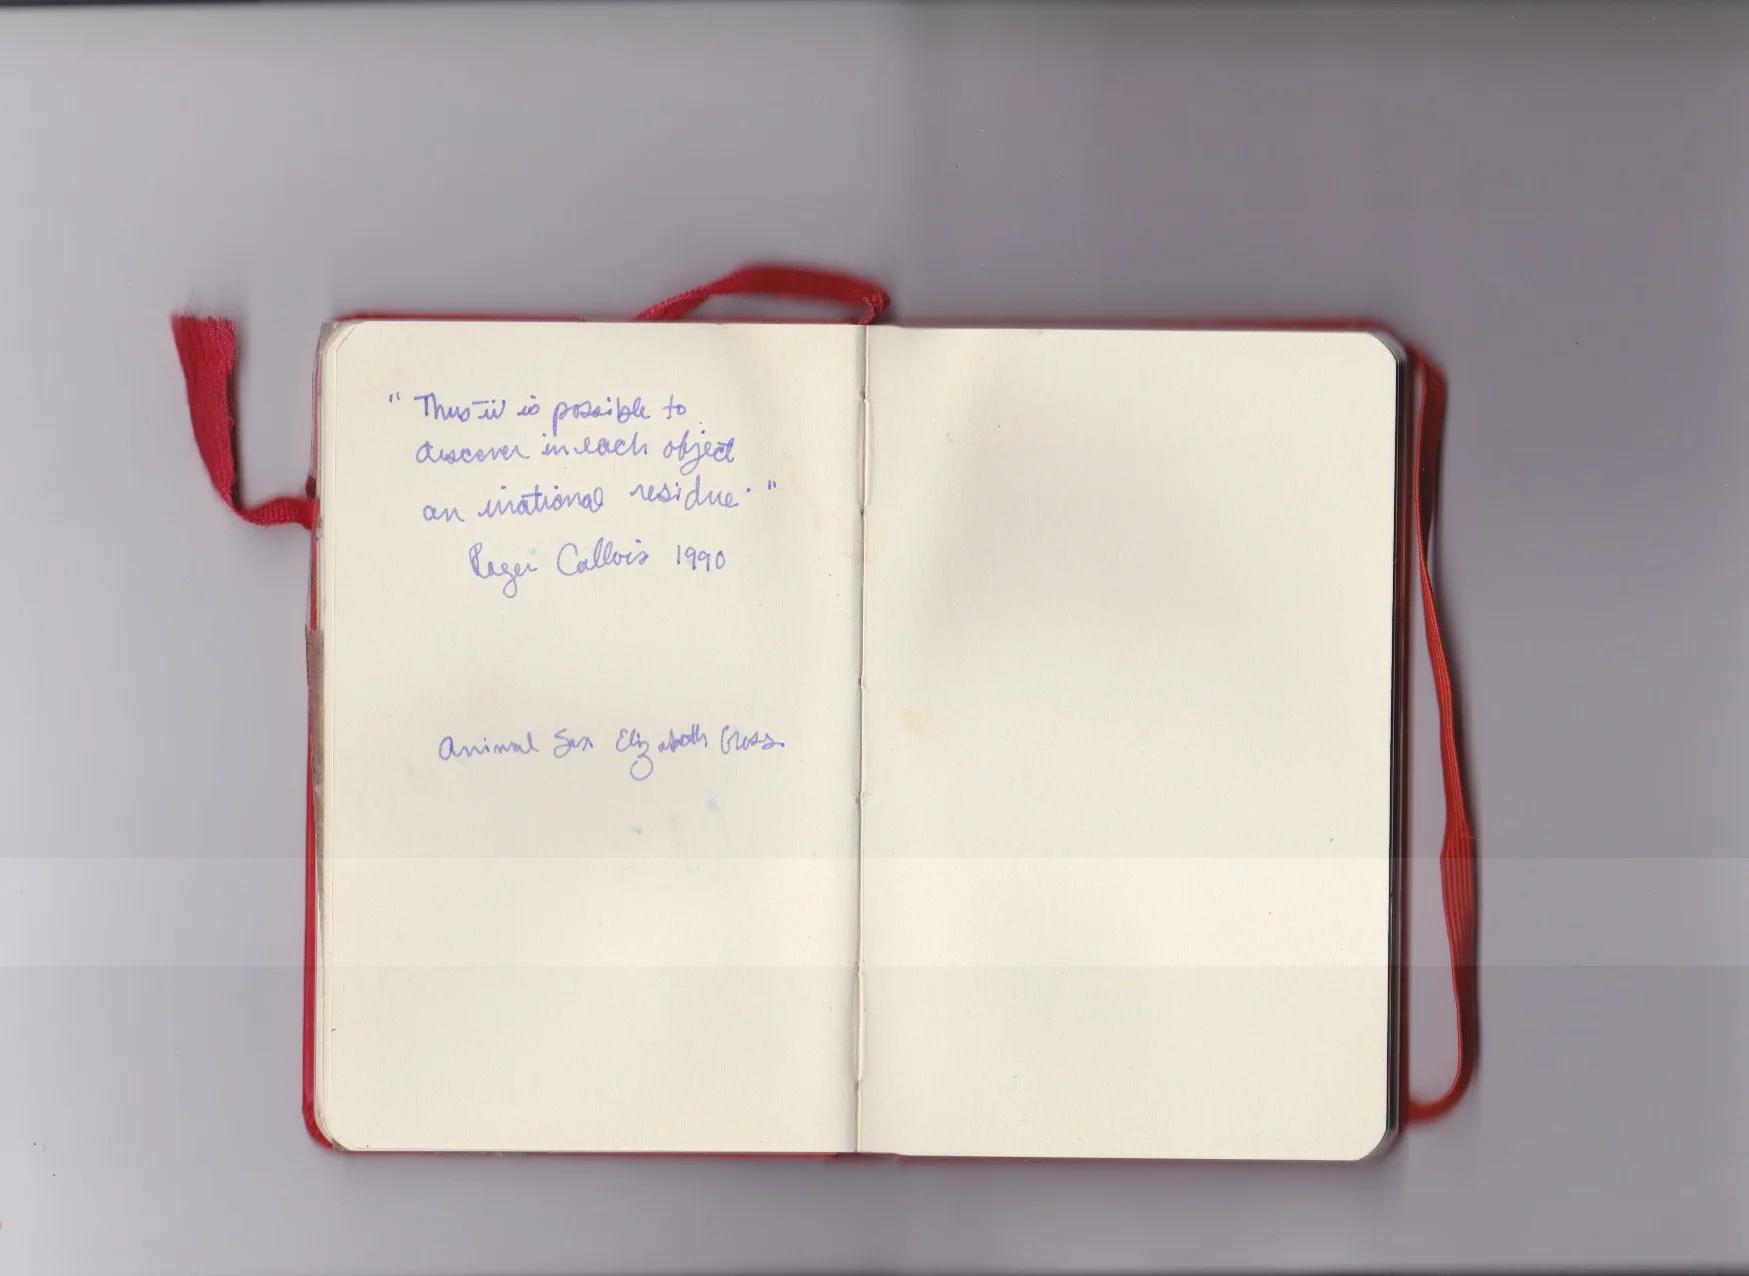 " Thus it is possible to
discover in each object
an irrational residue. "
Roger Callois 1990
Animal Sex Elizabeth Gross.